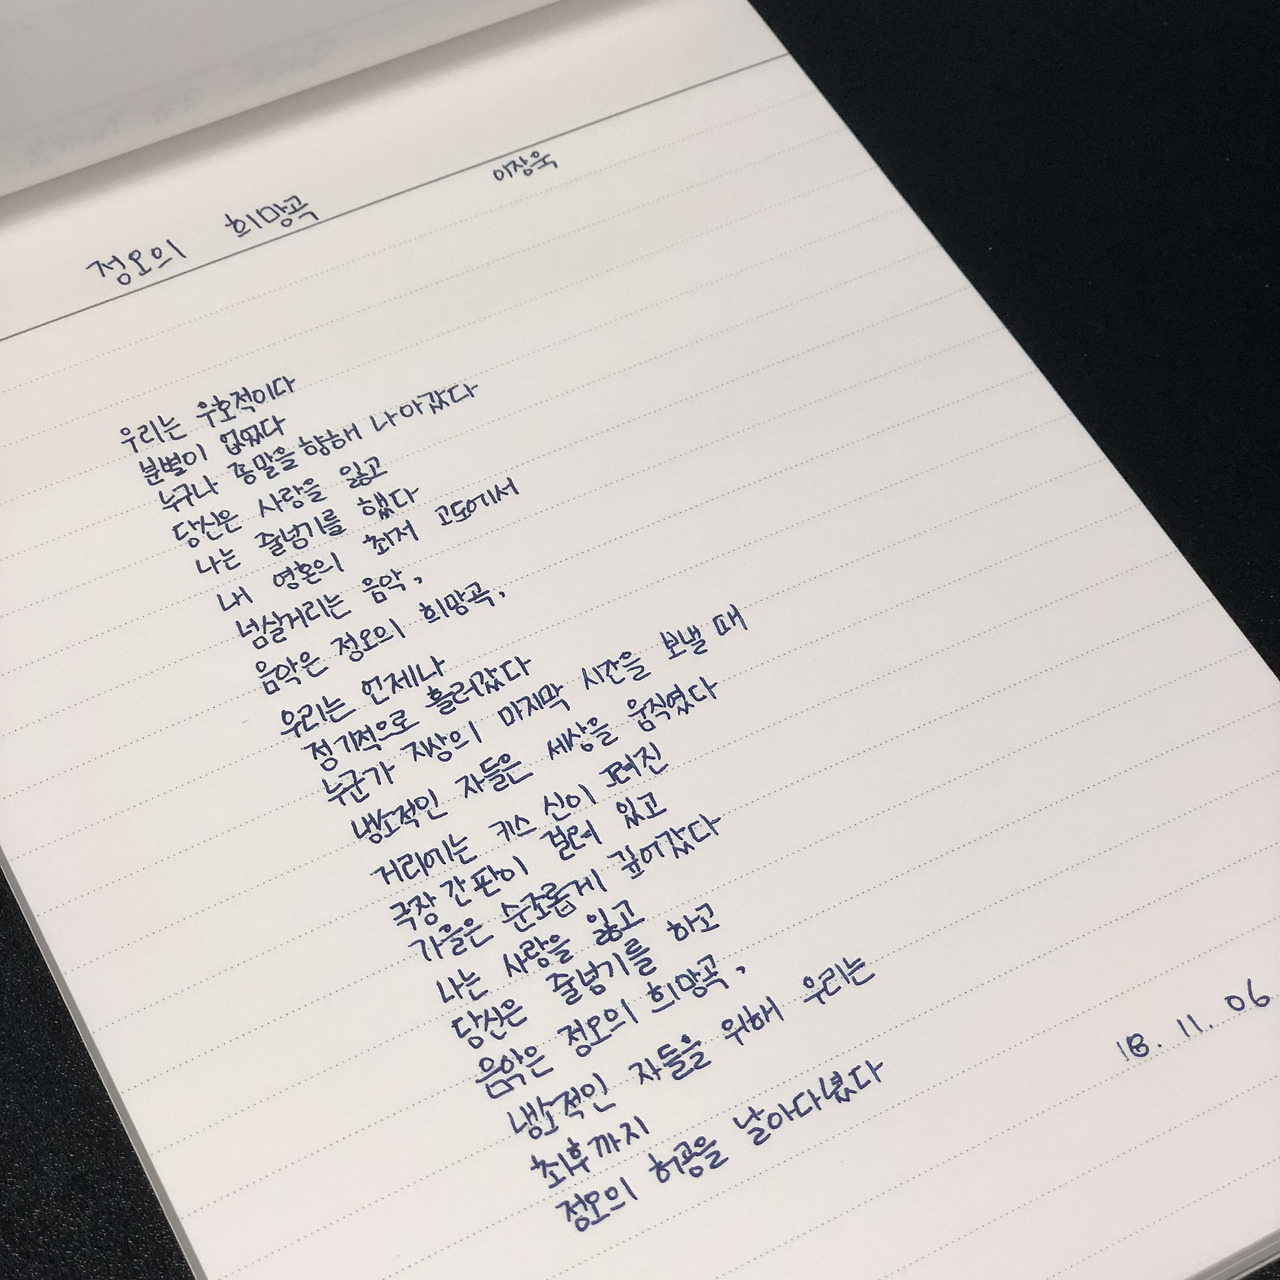 정오의 희망곡
이장욱
우리는 우호적이다
분별이 없었다
누구나 종말을 향해 나아갔다
당신은 사랑을 잃고
나는 줄넘기를 했다
내 영혼의 최저 고도에서
넘실거리는 음악,
음악은 정오의 희망곡,
우리는 언제나
정기적으로 흘러갔다
누군가 지상의 마지막 시간을 보낼 때
냉소적인 자들은 세상을 움직였다
거리에는 키스 신이 그려진
극장 간판이 걸려 있고
가을은 순조롭게 깊어갔다
나는 사랑을 잃고
당신은 줄넘기를 하고
음악은 정오의 희망곡,
냉소적인 자들을 위해 우리는
최후까지
정오의 허공을 날아다녔다
18. 11. 06